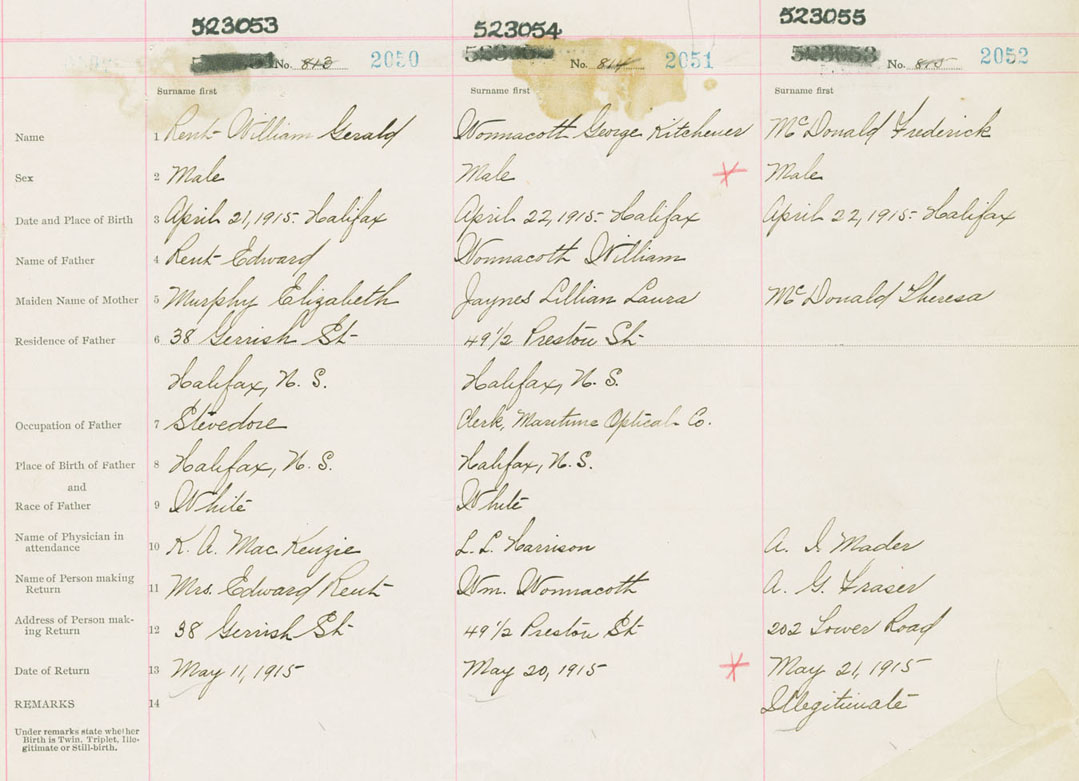 523053 523054 523055
No. 813 2050 No. 814 2051 No. 815 2052
Surname first Surname first Surname first
Name 1 Rent William Gerald Wonnacott George Kitchener McDonald Frederick
Sex 2 Male Male Male
Date and Place of Birth 3 April 21, 1915 - Halifax April 22, 1915 - Halifax April 22, 1915 - Halifax
Name of Father 4 Rent Edward Wonnacott William
Maiden Name of Mother 5 Murphy Elizabeth Jaynes Lillian Laura McDonald Theresa
Residence of Father 6 38 Gerrish St 49 1/2 Preston St
Halifax, N. S. Halifax, N. S.
Occupation of Father 7 Stevedore Clerk, Maritime Optical Co.
Place of Birth of Father 8 Halifax, N. S. Halifax, N. S.
and
Race of Father 9 White White
Name of Physician in
attendance 10 K. A. MacKenzie L. L. Harrison A. I. Mader
Name of Person making
Return 11 Mrs. Edward Rent Wm. Wonnacott A. G. Fraser
Address of Person mak-
ing Return 12 38 Gerrish St 49 1/2 Preston St 202 Lower Road
Date of Return 13 May 11, 1915 May 20, 1915 May 21, 1915
REMARKS 14 Illegitimate
Under remarks state whether
Birth is Twin. Triplet, Ille-
gitimate or Still-birth.